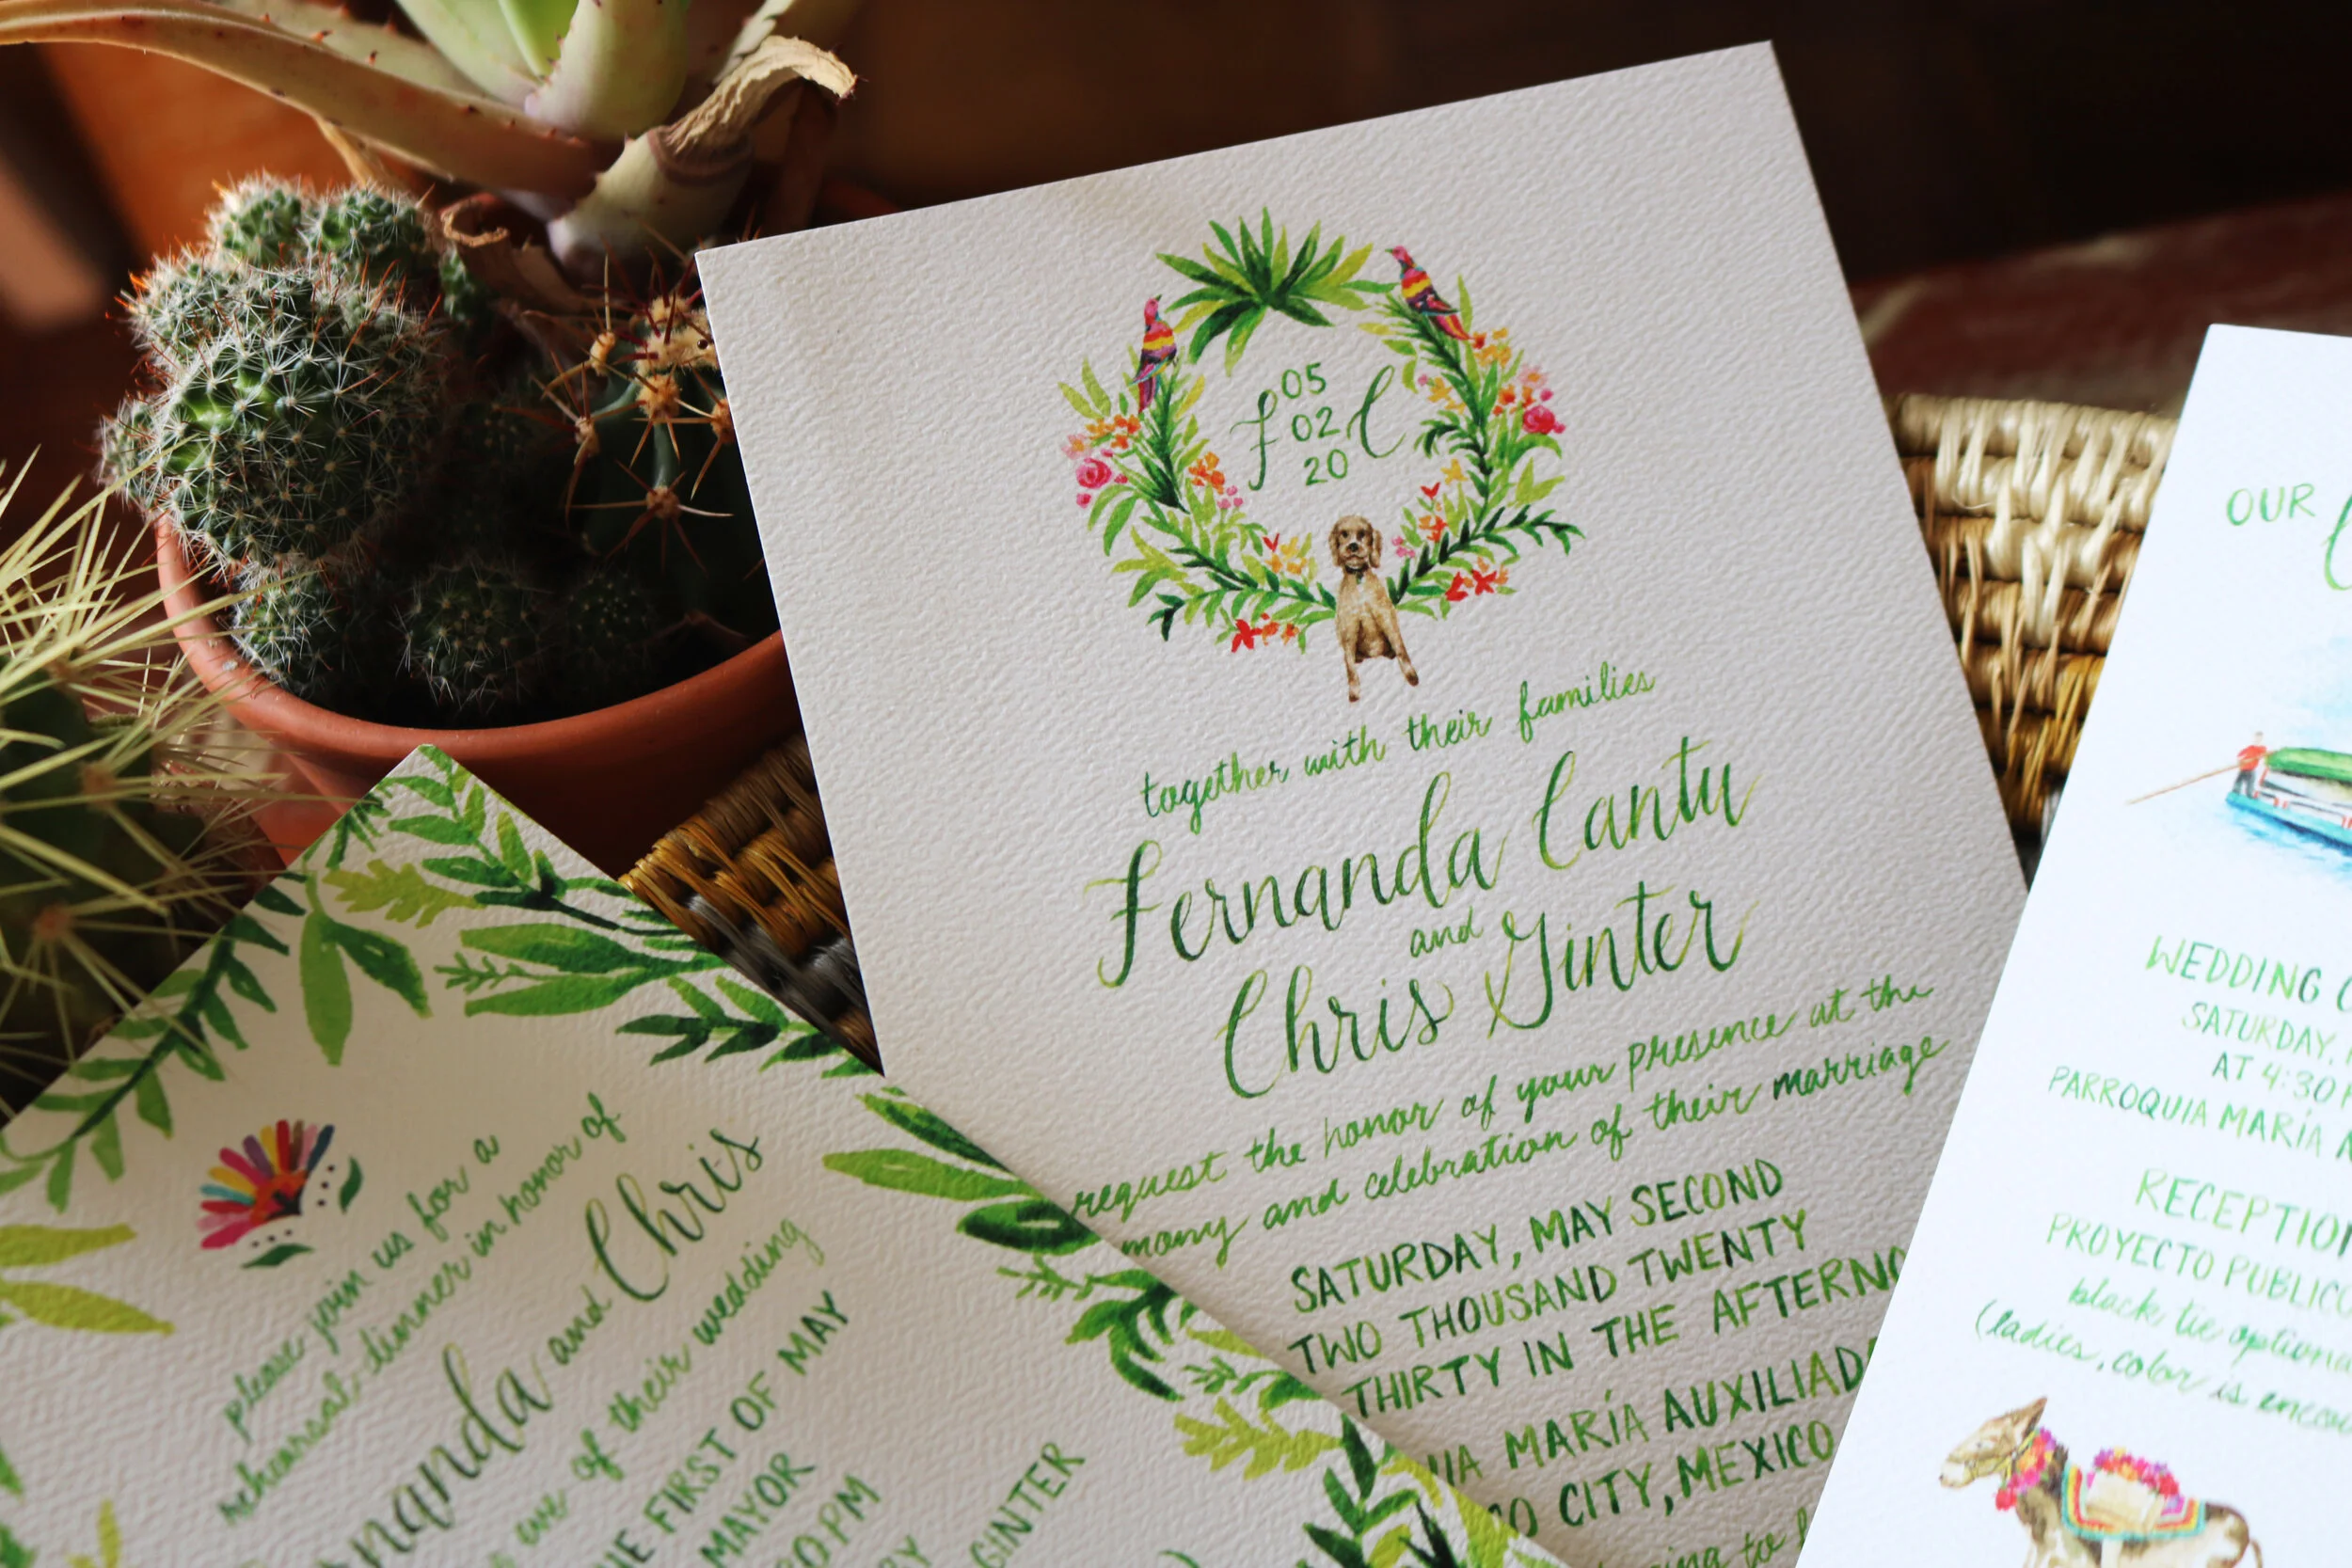 05
F 02 C
20
together with their families
Fernanda Cantu
and
Chris Ginter
request the honor of your presence at the
many and celebration of their marriage
SATURDAY, MAY SECOND
TWO THOUSAND TWENTY
THIRTY IN THE
MARÍA
CITY, MEXICO
to
please join us for a
rehearsal dinner in honor of
and Chris
eve of their wedding
FIRST OF MAY
MAYOR
PM
GINTER
OUR
WEDDING
SATURDAY,
AT 4:30
PARROQUIA MARÍA
RECEPTION
PROYECTO
black tie
(ladies, color is